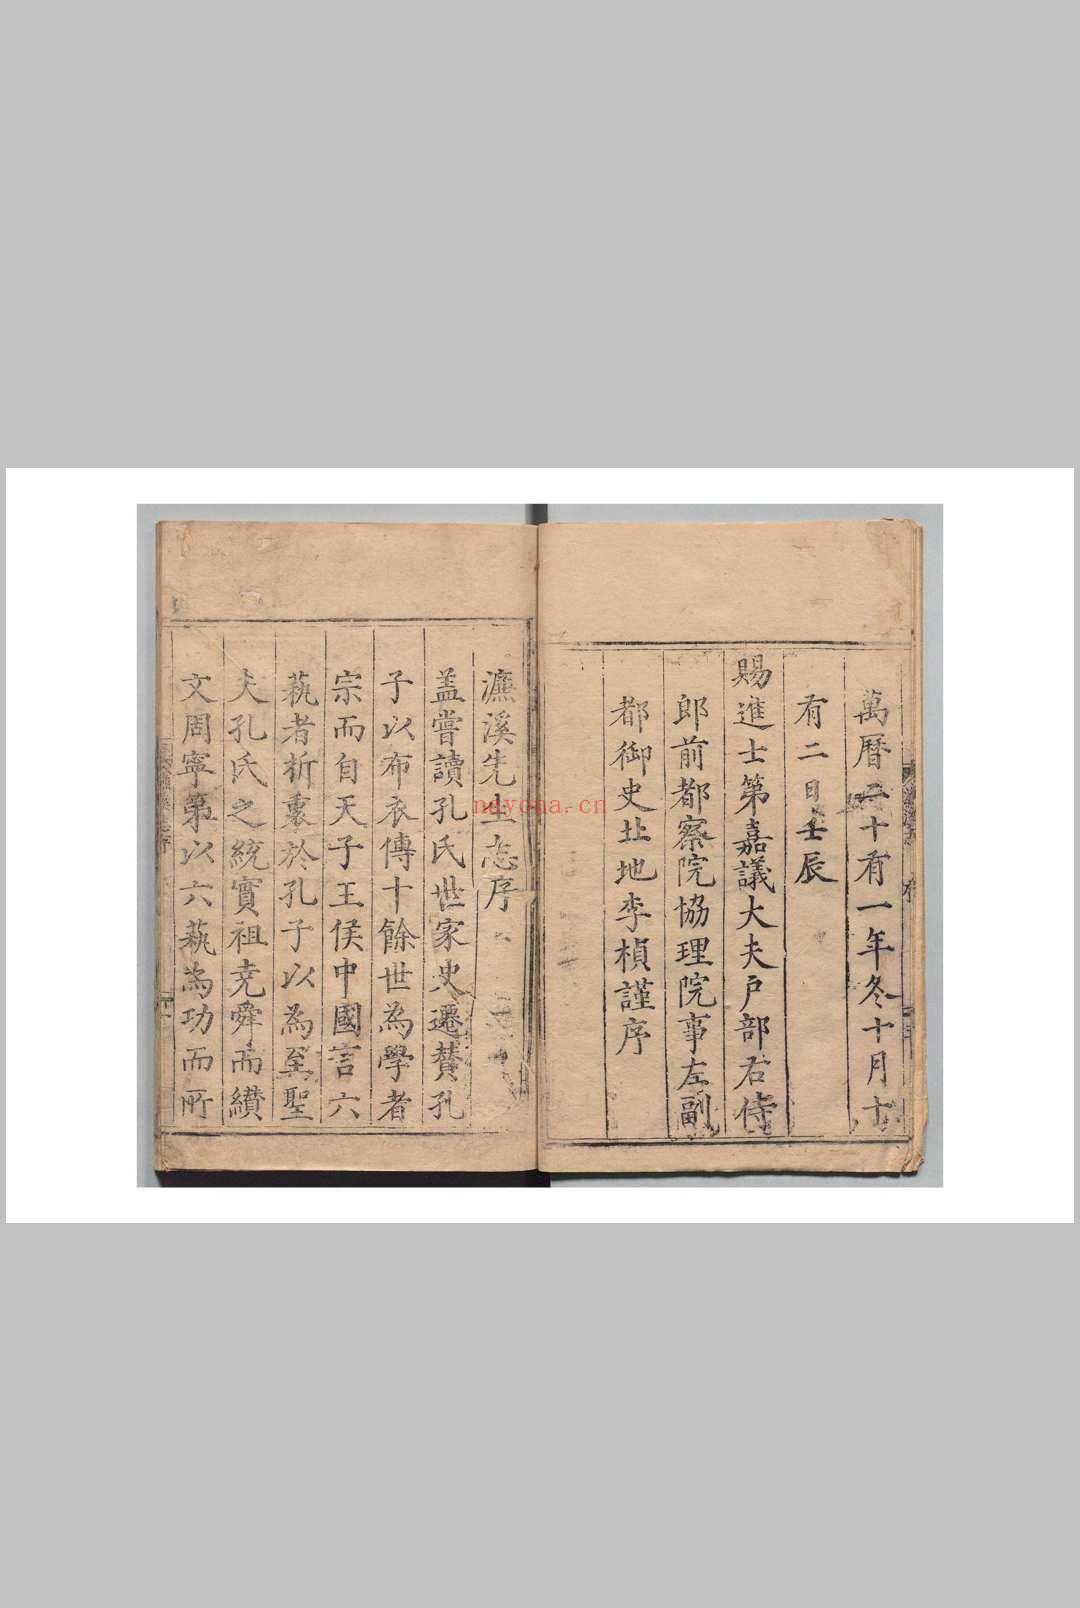 萬曆二十有一年冬十月十
有二日壬辰
賜進士第嘉議大夫戶部右侍
郎前都察院協理院事左副
都御史北地李楨謹序
濂溪先生志序
盖嘗讀孔氏世家史遷賛孔
子以布衣傳十餘世為學者
宗而自天子王侯中國言六
蓺者折衷於孔子以為至聖
夫孔氏之統實祖尭舜而纉
文周寧第以六蓺為功而所
nayona.cn